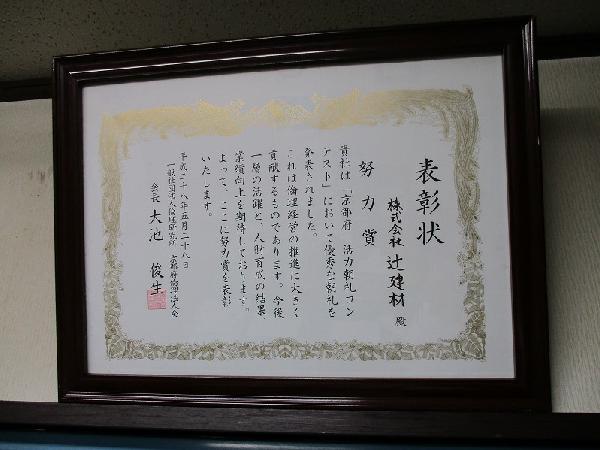 表彰状
株式会社 辻建材 殿
努力賞
貴社は「京都府 活力朝礼コン
テスト」において優秀な朝礼を
発表されました。
これは倫理経営の推進に大きく
貢献するものであります。今後
一層の活躍と、人財育成の結果
業績向上を期待しております。
よって、ここに努力賞を表彰
いたします。
平成二十八年五月二十八日
一般社団法人倫理研究所 京都府倫理法人会
会長 大池 俊生